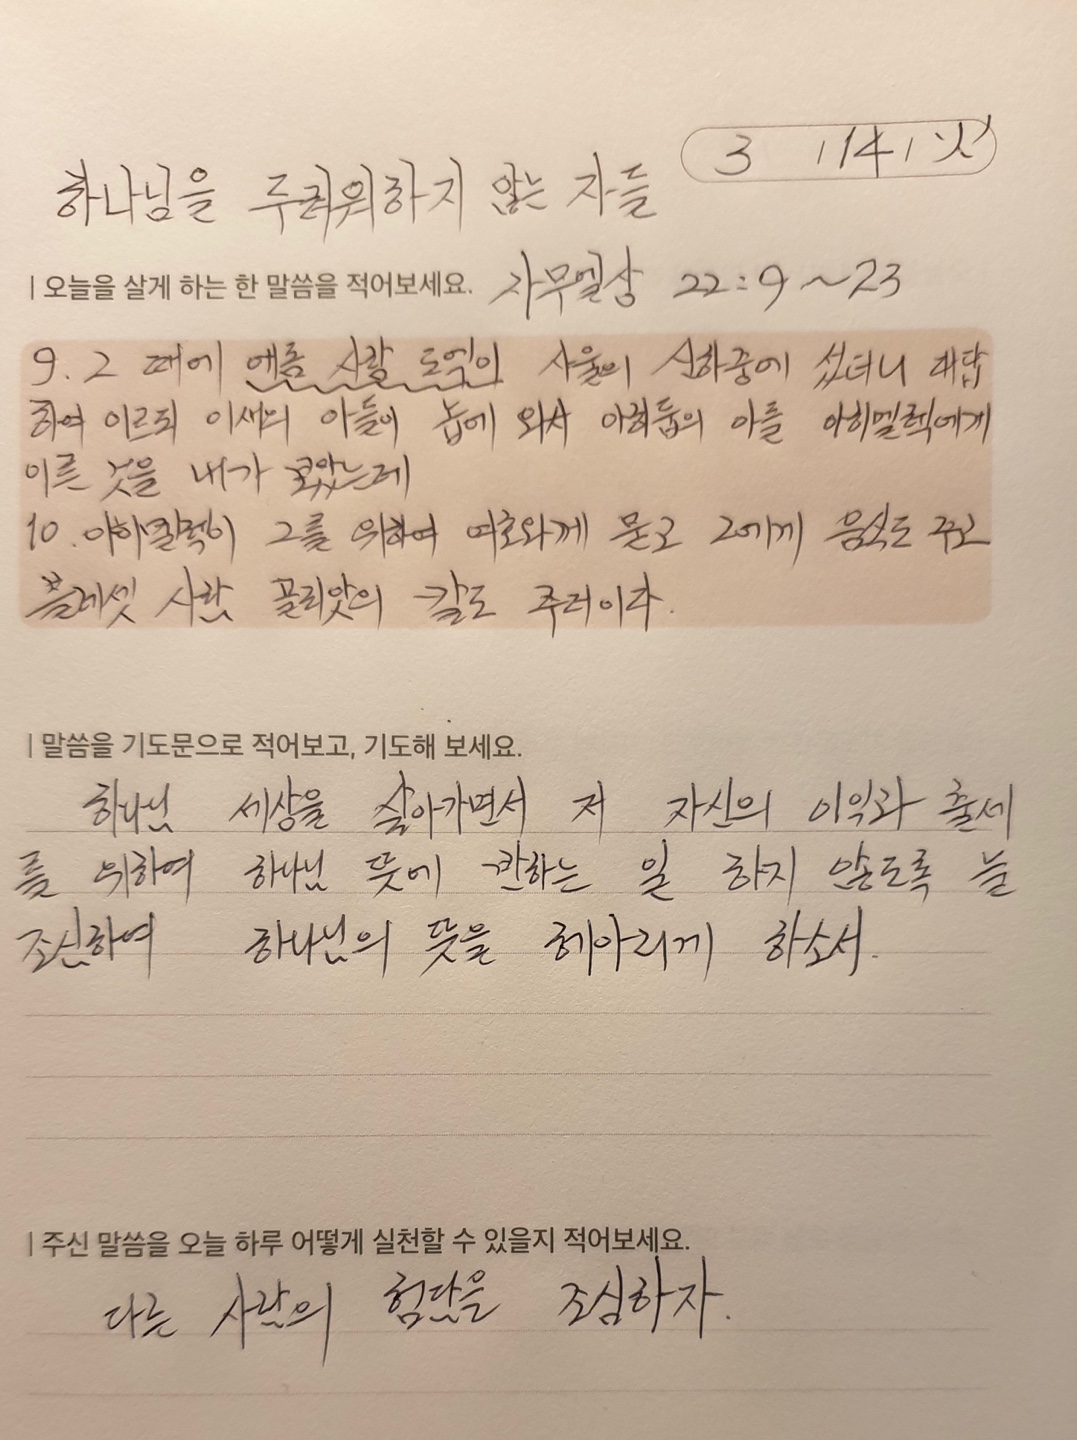 3 14 火
하나님을 두려워하지 않는 자들
오늘을 살게 하는 한 말씀을 적어보세요. 사무엘상 22:9~23
9. 그 때에 에돔 사람 도엑이 사울의 신하중에 섰더니 대답
하여 이르되 이새의 아들이 놉에 와서 아히둡의 아들 아히멜렉에게
이른 것을 내가 보았는데
10. 아히멜렉이 그를 위하여 여호와께 묻고 그에게 음식도 주고
블레셋 사람 골리앗의 칼도 주더이다.
말씀을 기도문으로 적어보고, 기도해 보세요.
하나님 세상을 살아가면서 저 자신의 이익과 출세
를 위하여 하나님 뜻에 반하는 일 하지 않도록 늘
조심하여 하나님의 뜻을 헤아리게 하소서.
주신 말씀을 오늘 하루 어떻게 실천할 수 있을지 적어보세요.
다른 사람의 험담을 조심하자.